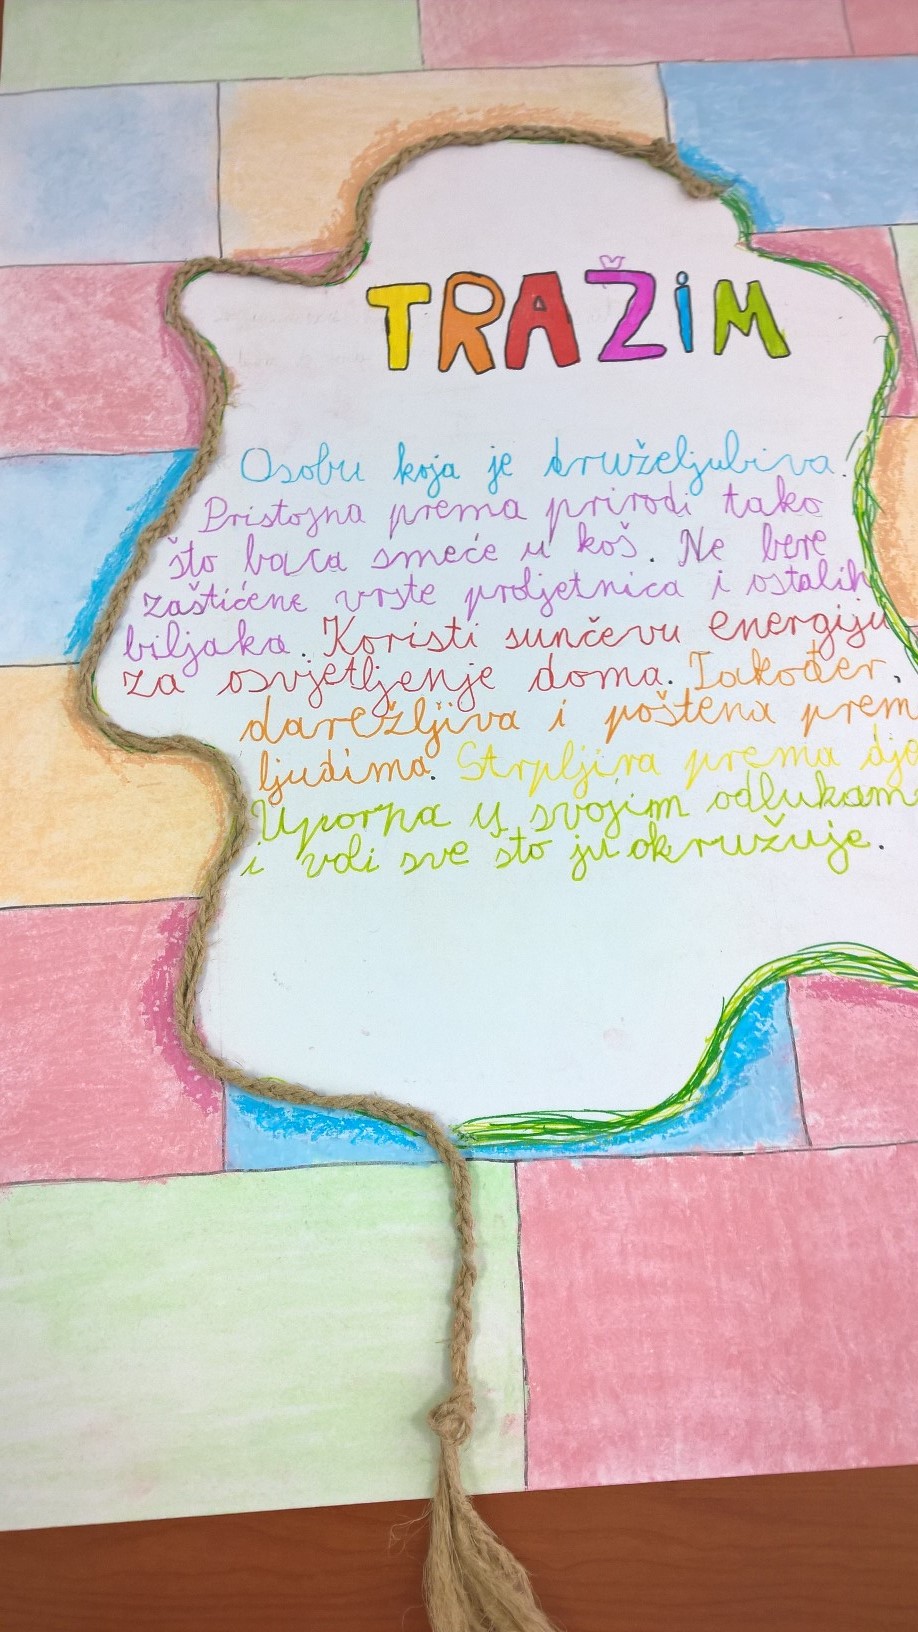 TRAŽIM
Osobu koja je druželjubiva.
Pristojna prema prirodi tako
što baca smeće u koš. Ne bere
zaštićene vrste proljetnica i ostalih
biljaka. Koristi sunčevu energiju
za osvjetljenje doma. Također,
darežljiva i poštena prem
ljudima. Strpljiva prema dje
Uporna u svojim odlukam
i voli sve što ju okružuje.